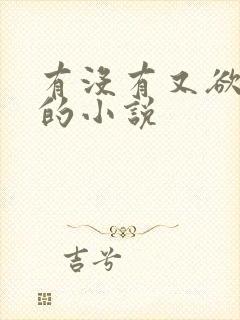 有没有又欲
的小说
吉兮